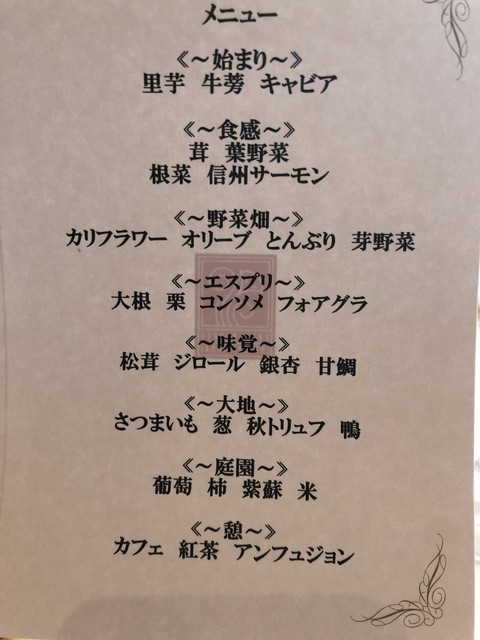 メニュー
《～始まり～》
里芋 牛蒡 キャビア
《～食感～》
茸 葉野菜
根菜 信州サーモン
《～野菜畑～》
カリフラワー オリーブ とんぶり 芽野菜
《～エスプリ～》
大根 栗 コンソメ フォアグラ
《～味覚～》
松茸 ジロール 銀杏 甘鯛
《～大地～》
さつまいも 葱 秋トリュフ 鴨
《～庭園～》
葡萄 柿 紫蘇 米
《～憩～》
カフェ 紅茶 アンフュジョン